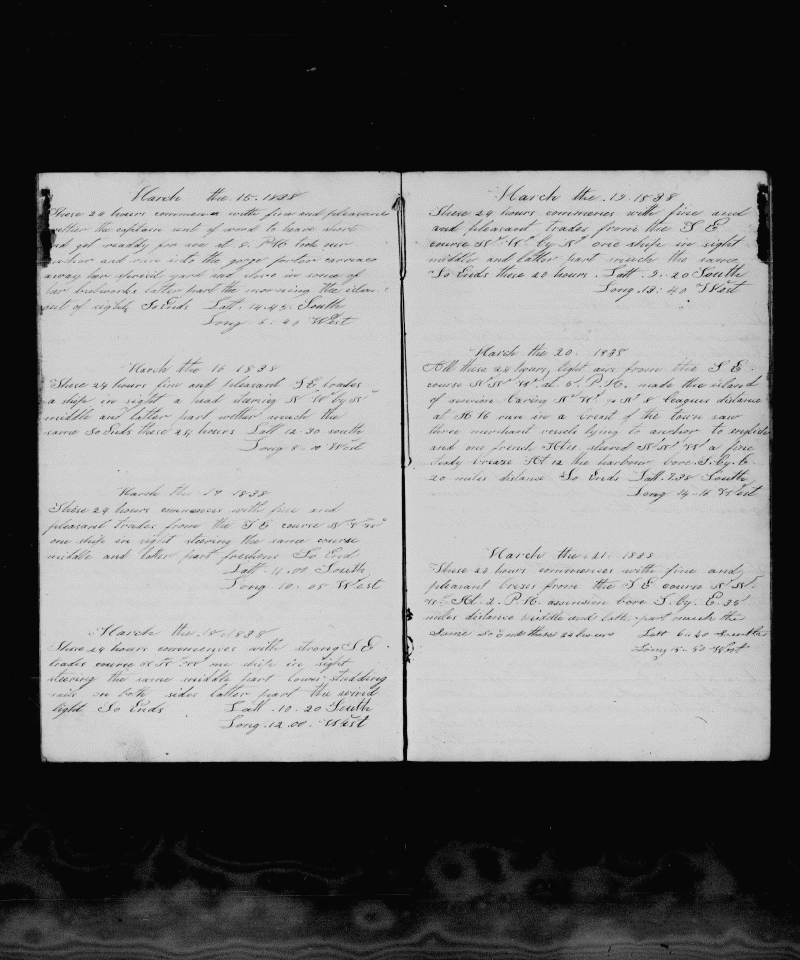 March the 15. 1838
These 24 hours commences with fine and pleasant
wether the captain sent of word to heave short
and get readdy for sea at 8. P.M. took our
anchor and run into the
away her spricil yard and stove in some of
her bulworks latter part the morning the
out of sight, So Ends Latt. 14.45. South
Long. 6. 40 West
March the 16 1838
These 24 hours fine and pleasant S.E. trades
a ship in sight a head stering N W by N
middle and latter part wether much the
same So Ends these 24 hours Latt 12.30 south
Long. 8. West
March the 17 1838
These 24 hours commences with fine and
pleasant trades from the S E course N W
one ship in sight steering the same course
middle and later part freshens So End
Latt. 11.01 South
Long. 10. 05 West
March the 18. 1838
These 24 hours commences with strong S E
trades course N N W one ship in sight
steering the same middle part lower studding
sails on both sides latter part the wind
light So Ends Latt. 10. 20 South
Long. 12.00. West
March the .19. 1838
These 24 hours commences with fine and
and pleasant trades from the S E
course N W by N one ship in sight
middle and latter part much the same
So Ends these 24 hours. Latt. 9. 20 South
Long. 13. 40 West
March the 20. 1838
All these 24 hours, light airs from the S E.
course N N W. at 5. P.M. made the island
of baring N W 8 leagues distance
at run in a brest of the town saw
three merchant vessels lying to anchor to english
and one french stered N N W a fine
breaze At 12 the harbour bore S. by. E.
20 miles distance So Ends Latt. 7.38 South
Long 14. 11 West
March the .21. 1838
These 24 hours commences with fine and
pleasant breses from the S E course N N
W. At. 2. P.M. bore S. by. E. 35
miles distance middle and latter part much the
same So Ends these 24 hours Latt 6. 40 South
Long 50 West